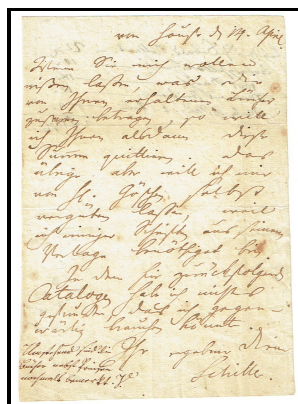 von Hause d. 14. April.
Wenn Sie mich wollen
wissen lassen, was die
von Ihnen erhaltenen Bücher
zusammen betragen, so will
ich Ihnen alsdann diese
Summe quittiren. Das
übrige aber will ich mir
von H. Göschen selbst
vergüten lassen, weil
ich einiger Schriften aus seinem
Verlage benöthigt bin.
In dem hier zurückfolgenden
Cataloge hab ich nichts
gefunden, das ich gegen-
wärtig brauchen könnte.
Ihr ergebner Diener
Schiller